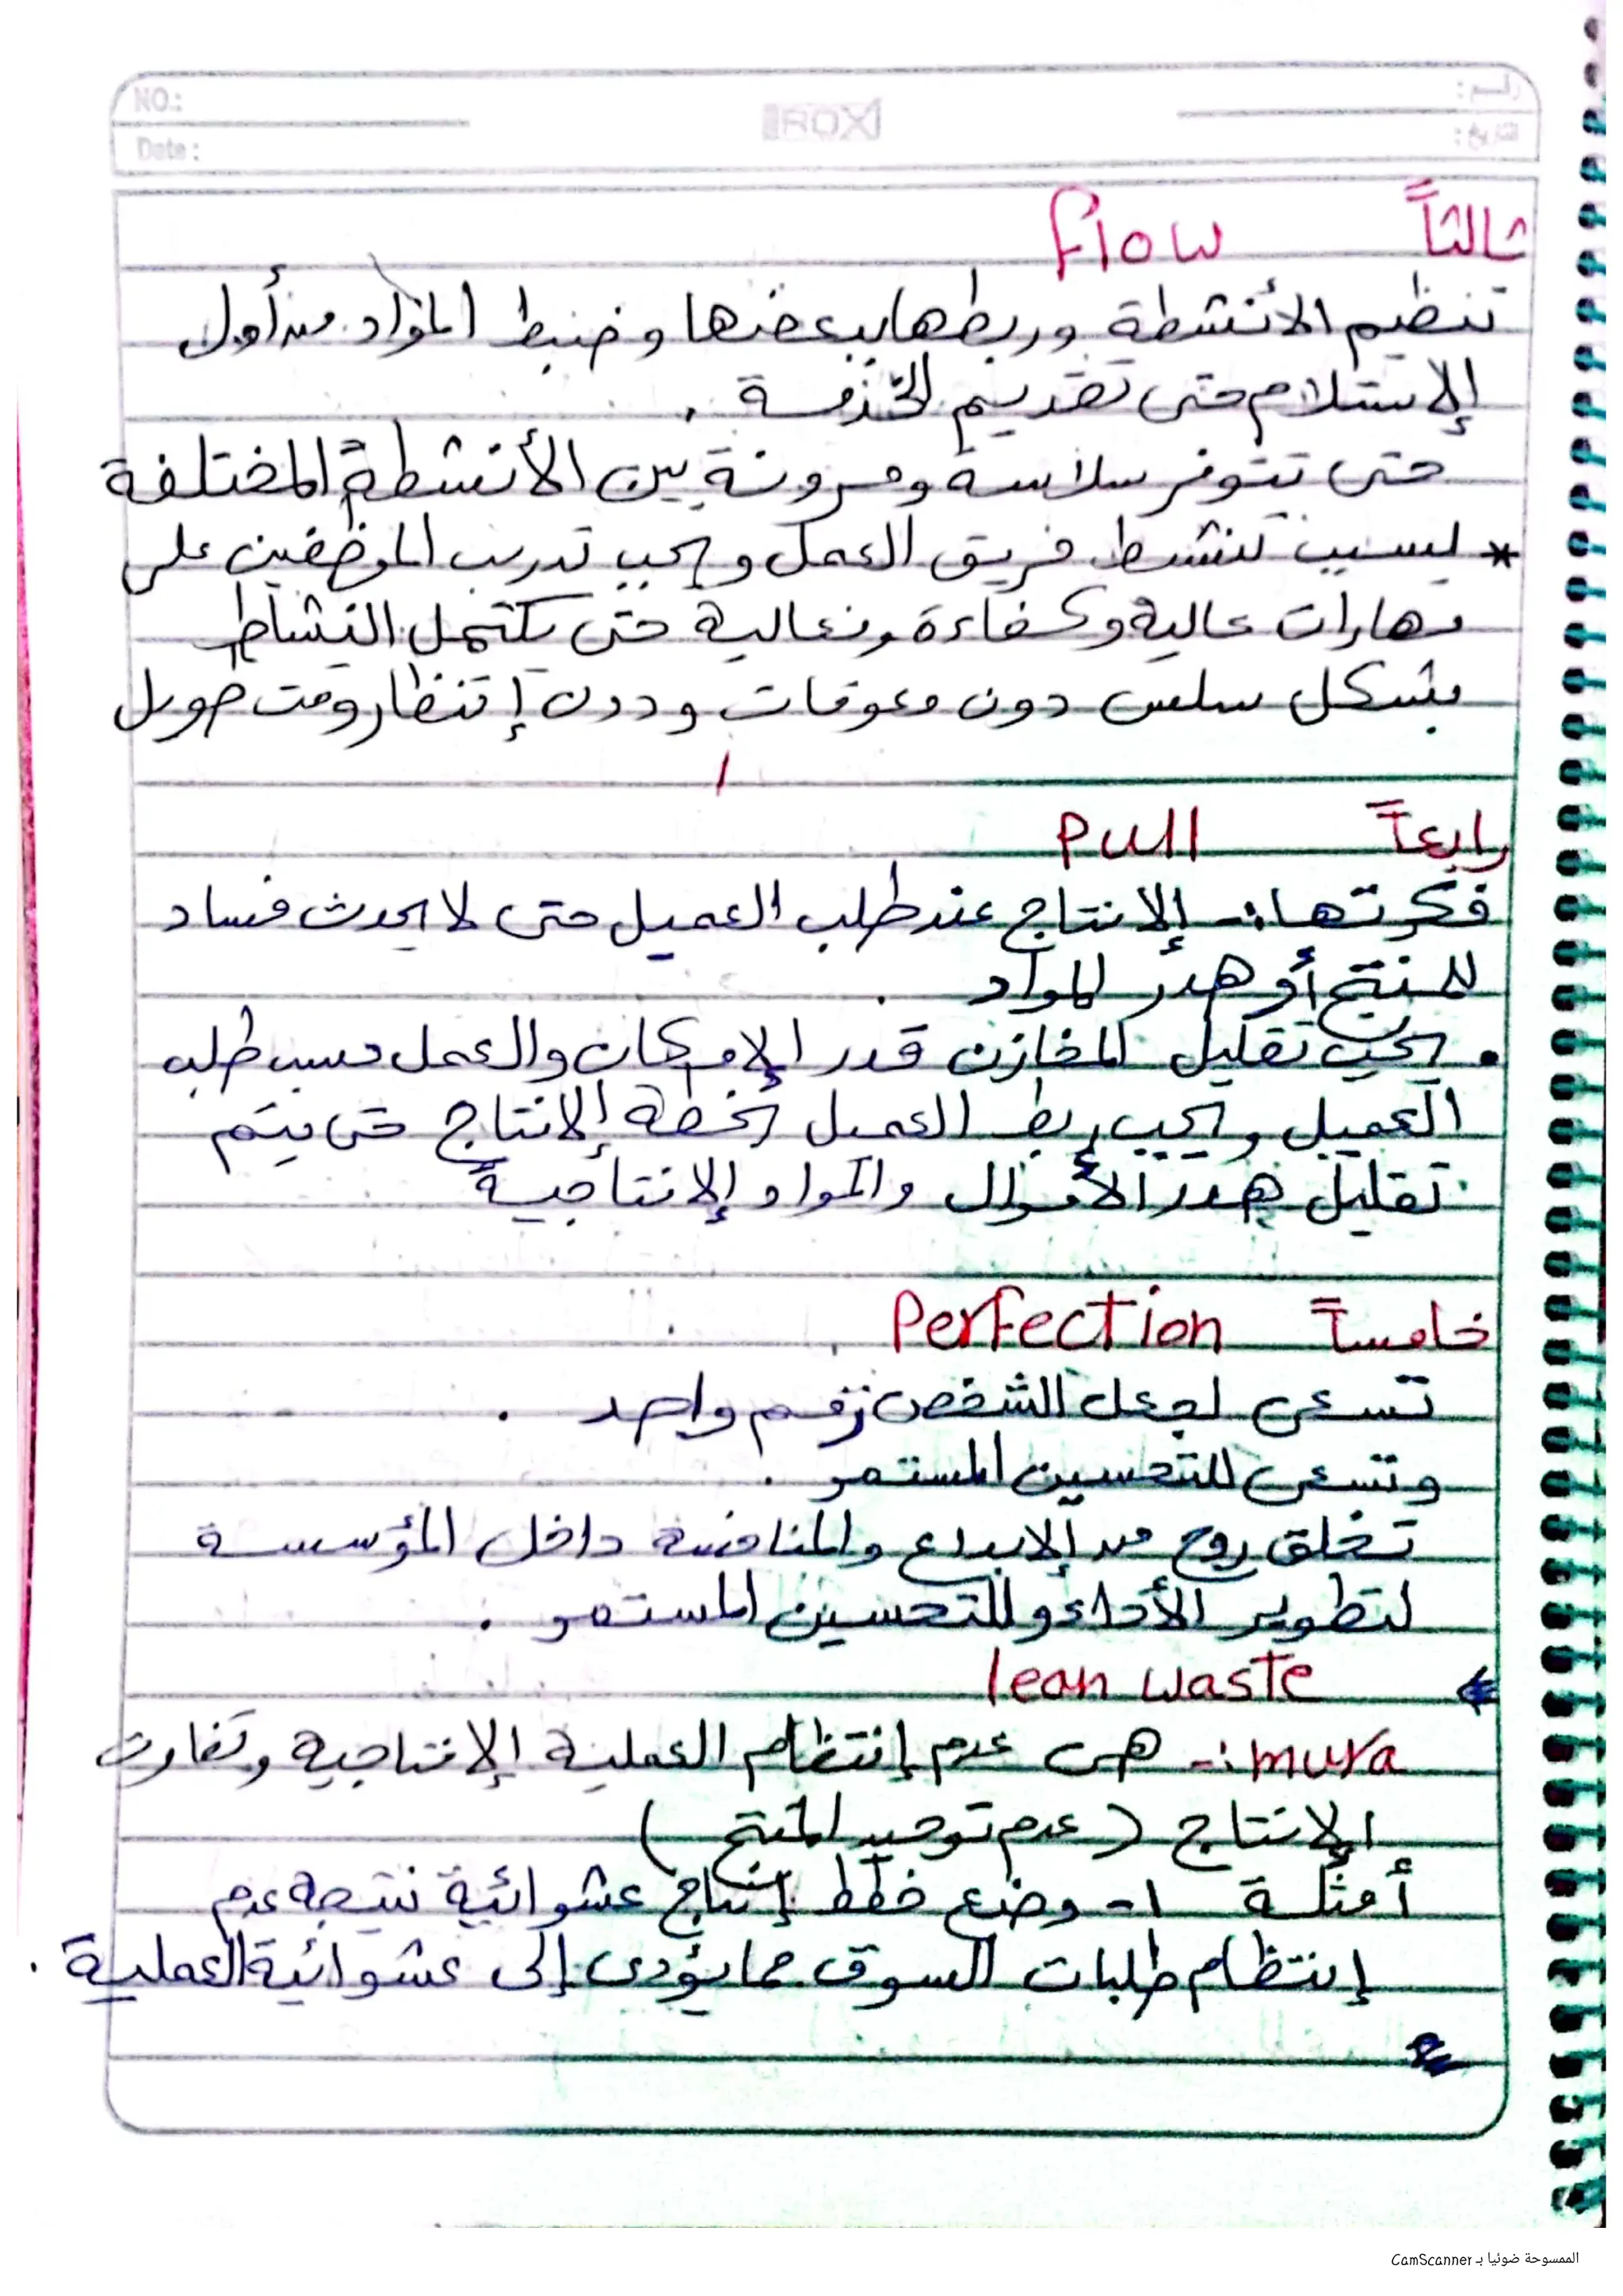 NO.:
رقم :
ROXI
Date :
التاريخ :
ثالثاً flow
تنظيم الأنشطة وربطها ببعضها وضبط المواد من أول
الإستلام حتى تقديم الخدمة .
حتى تتوفر سلاسة ومرونة بين الأنشطة المختلفة
* ليسيب تنشط فريق العمل ويجب تدريب الموظفين على
مهارات عالية وكفاءة وفعالية حتى يكتمل النشاط
بشكل سلس دون معوقات ودون إنتظار وقت طويل
رابعاً Pull
فكرتها :- الإنتاج عند طلب العميل حتى لا يحدث فساد
للمنتج أو هدر المواد .
• يجب تقليل المخازن قدر الإمكان والعمل حسب طلب
العميل ويجب ربط العميل بخطة الإنتاج حتى يتم
تقليل هدر الأموال والمواد الإنتاجية
خامساً Perfection
تسعى لجعل الشخص رقم واحد .
وتسعى للتحسين المستمر .
تخلق روح من الإبداع والمنافسة داخل المؤسسة
لتطوير الأداء وللتحسين المستمر .
lean waste
mura :- هى عدم إنتظام العملية الإنتاجية وتفاوت
الإنتاج ( عدم توحيد المنتج )
أمثلة 1- وضع خطط إنتاج عشوائية نتيجة عدم
إنتظام طلبات السوق مما يؤدى إلى عشوائية العملية .
الممسوحة ضوئيا بـ CamScanner